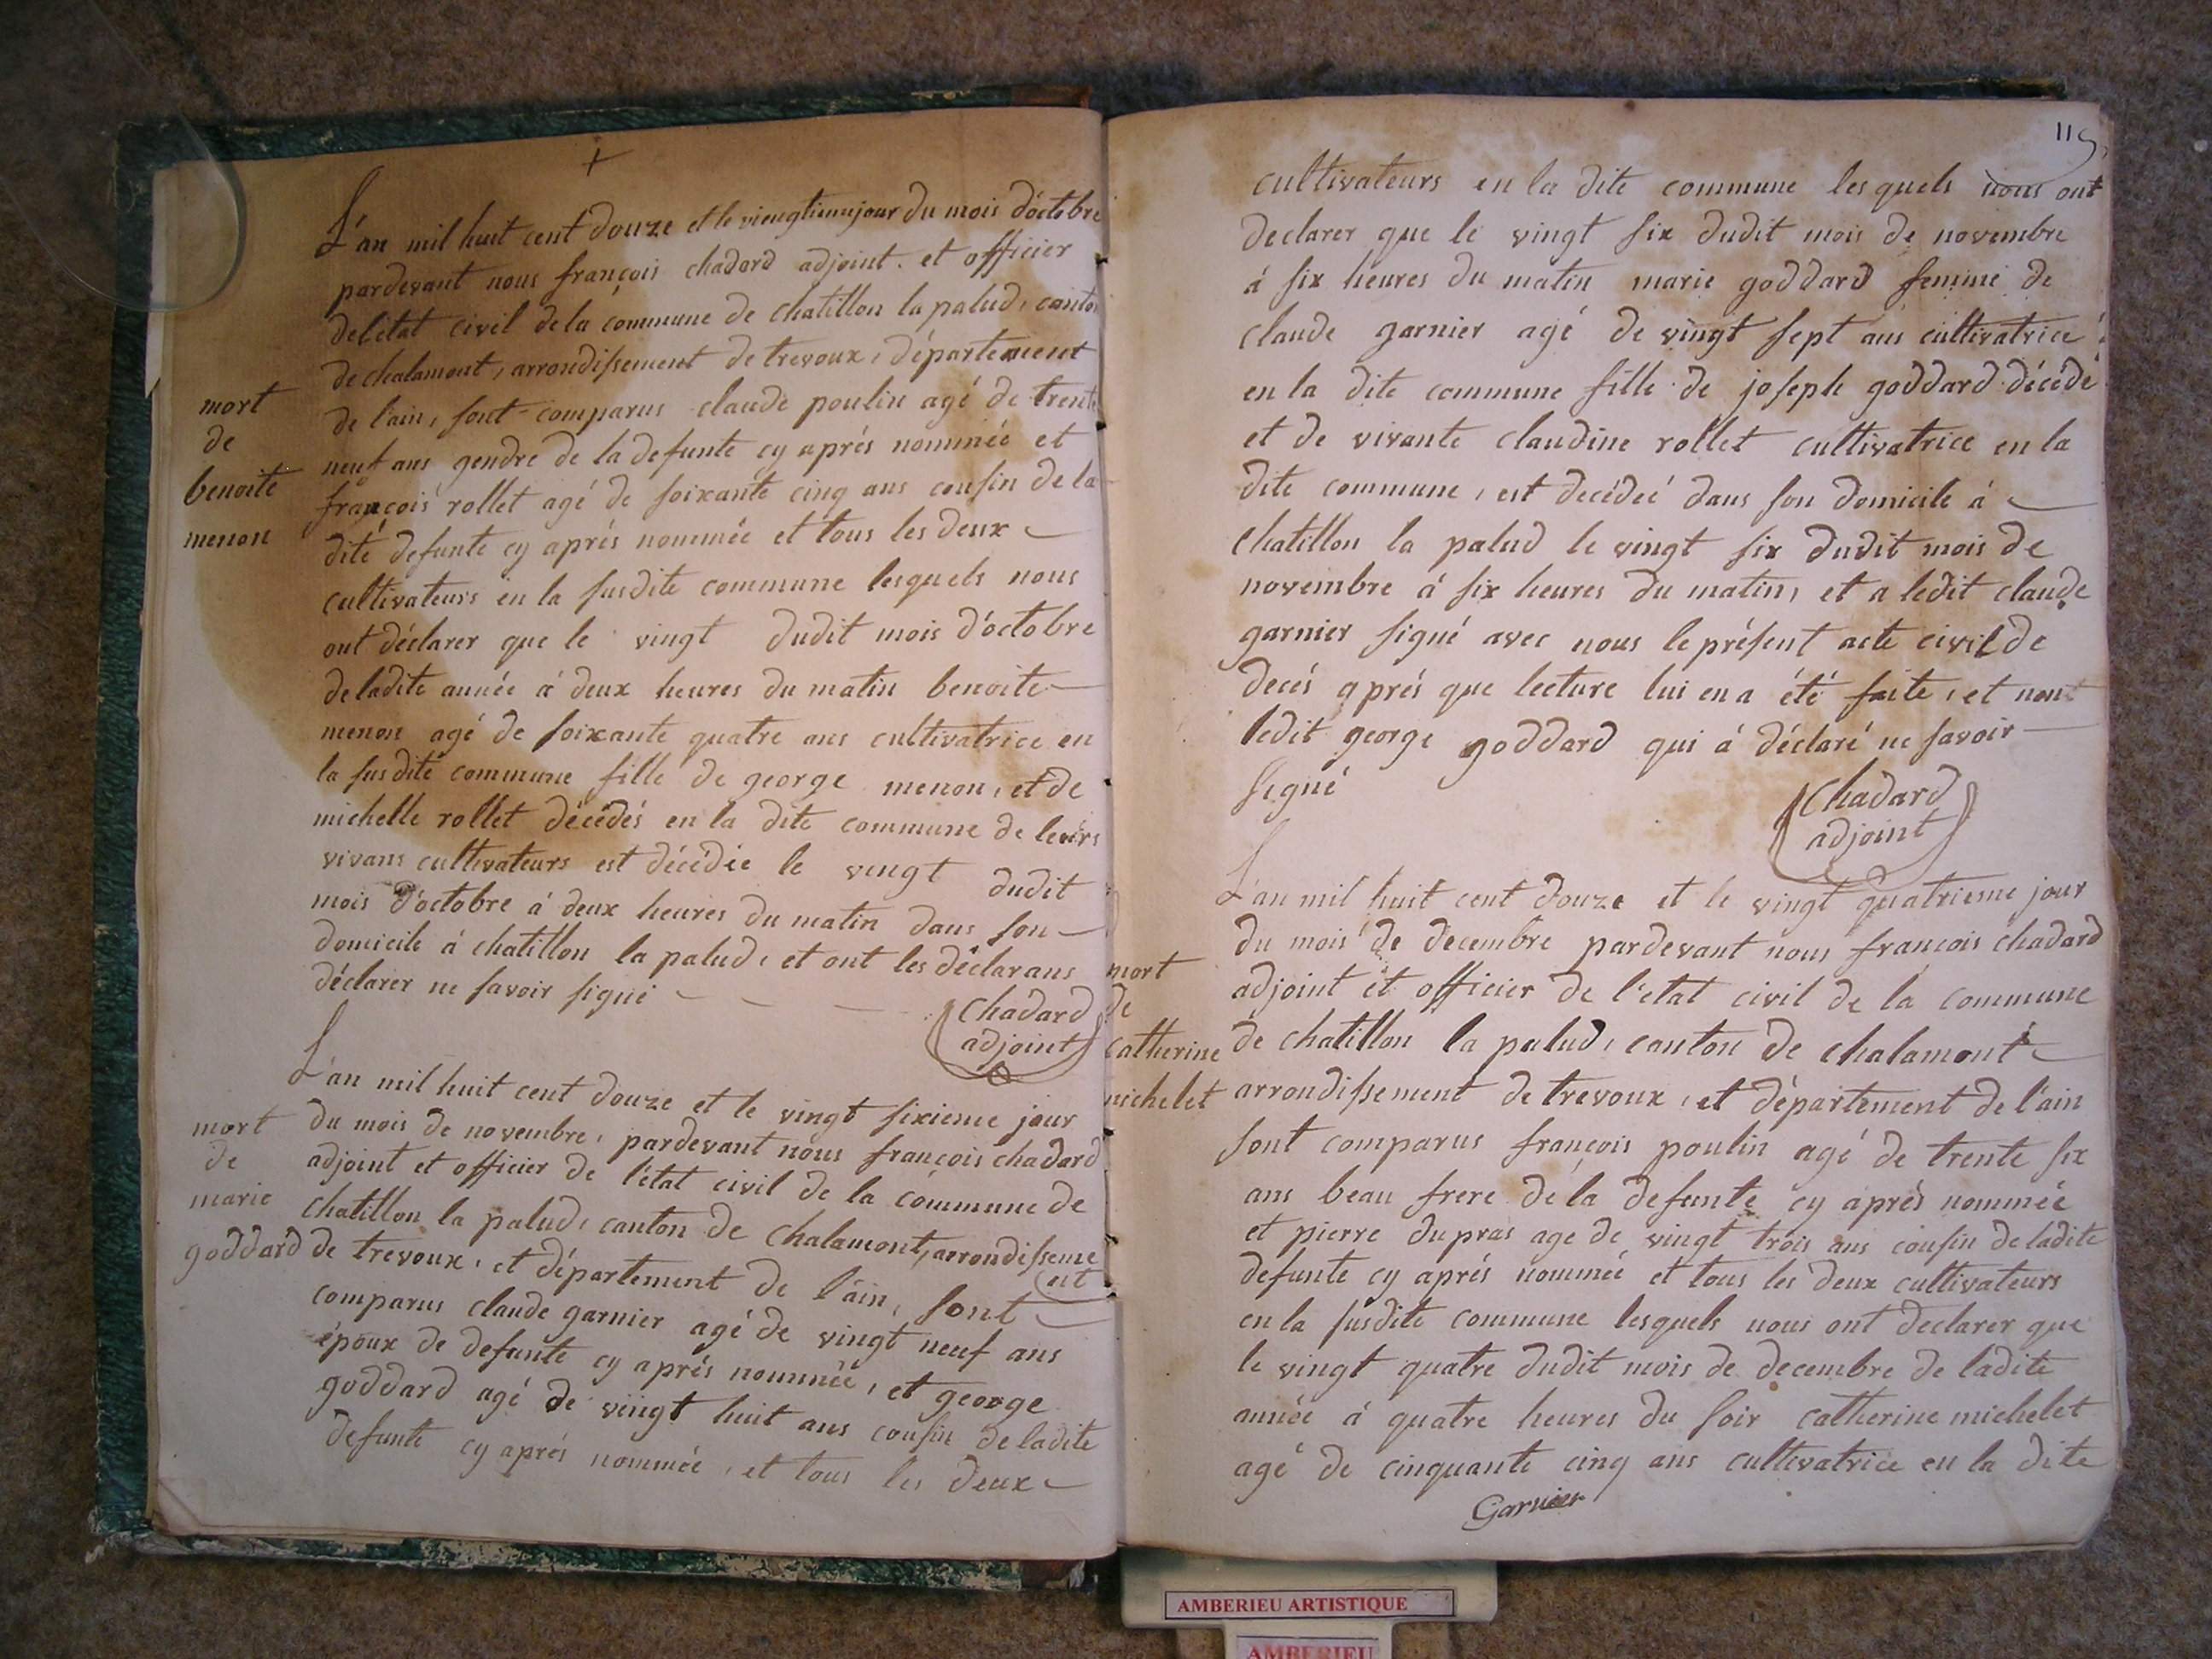 +
L'an mil huit cent douze et le viengtiemejour du mois d'octobre
pardevant nous françois chadard adjoint. et officier
deletat civil dela commune de chatillon la palud, canton
de chalamont, arrondissement de trevoux, département
de l'ain, sont comparus claude poulin agé de trente
neuf ans gendre de la defunte cy aprés nommée et
françois rollet agé de soixante cinq ans cousin de la
dite defunte cy aprés nommée et tous les deux
cultivateurs en la susdite commune lesquels nous
ont déclarer que le vingt dudit mois d'octobre
deladite année à deux heures du matin benoite
menon agé de soixante quatre ans cultivatrice en
la susdite commune fille de george menon, et de
michelle rollet décédés en la dite commune de leurs
vivans cultivateurs est décédée le vingt dudit
mois d'octobre à deux heures du matin dans son
domicile à chatillon la palud, et ont les déclarans
déclarer ne savoir signé
Chadard
adjoint
mort
de
benoite
menon
L'an mil huit cent douze et le vingt sixieme jour
du mois de novembre, pardevant nous françois chadard
adjoint et officier de l'état civil de la commune de
chatillon la palud, canton de chalamont, arrondisseme
ent
de trevoux, et département de l'ain, sont
comparus claude garnier agé de vingt neuf ans
époux de defunte cy aprés nommée, et george
goddard agé de vingt huit ans cousin deladite
defunte cy aprés nommée, et tous les deux
mort
de
marie
goddard
115
cultivateurs en la dite commune lesquels nous ont
declarer que le vingt six dudit mois de novembre
à six heures du matin marie goddard femme de
claude garnier agé de vingt sept ans cultivatrice
en la dite commune fille de joseph goddard décédé
et de vivante claudine rollet cultivatrice en la
dite commune, est decédeé dans son domicile à
chatillon la palud le vingt six dudit mois de
novembre à six heures du matin, et a ledit claude
garnier signé avec nous le présent acte civil de
decés aprés que lecture lui en a été faite, et non
ledit george goddard qui à déclaré ne savoir
signé
Chadard
adjoint
L'an mil huit cent douze et le vingt quatrieme jour
du mois de decembre pardevant nous françois chadard
adjoint et officier de l'etat civil de la commune
de chatillon la palud, canton de chalamont
arrondissement de trevoux, et département de l'ain
sont comparus françois poulin agé de trente six
ans beau frere de la defunte cy aprés nommée
et pierre dupras age de vingt trois ans cousin deladite
defunte cy aprés nommeé et tous les deux cultivateurs
en la susdite commune lesquels nous ont declarer que
le vingt quatre dudit mois de decembre de ladite
année à quatre heures du soir catherine michelet
agé de cinquante cinq ans cultivatrice en la dite
Garnier
mort
de
catherine
michelet
AMBERIEU ARTISTIQUE
AMBERIEU